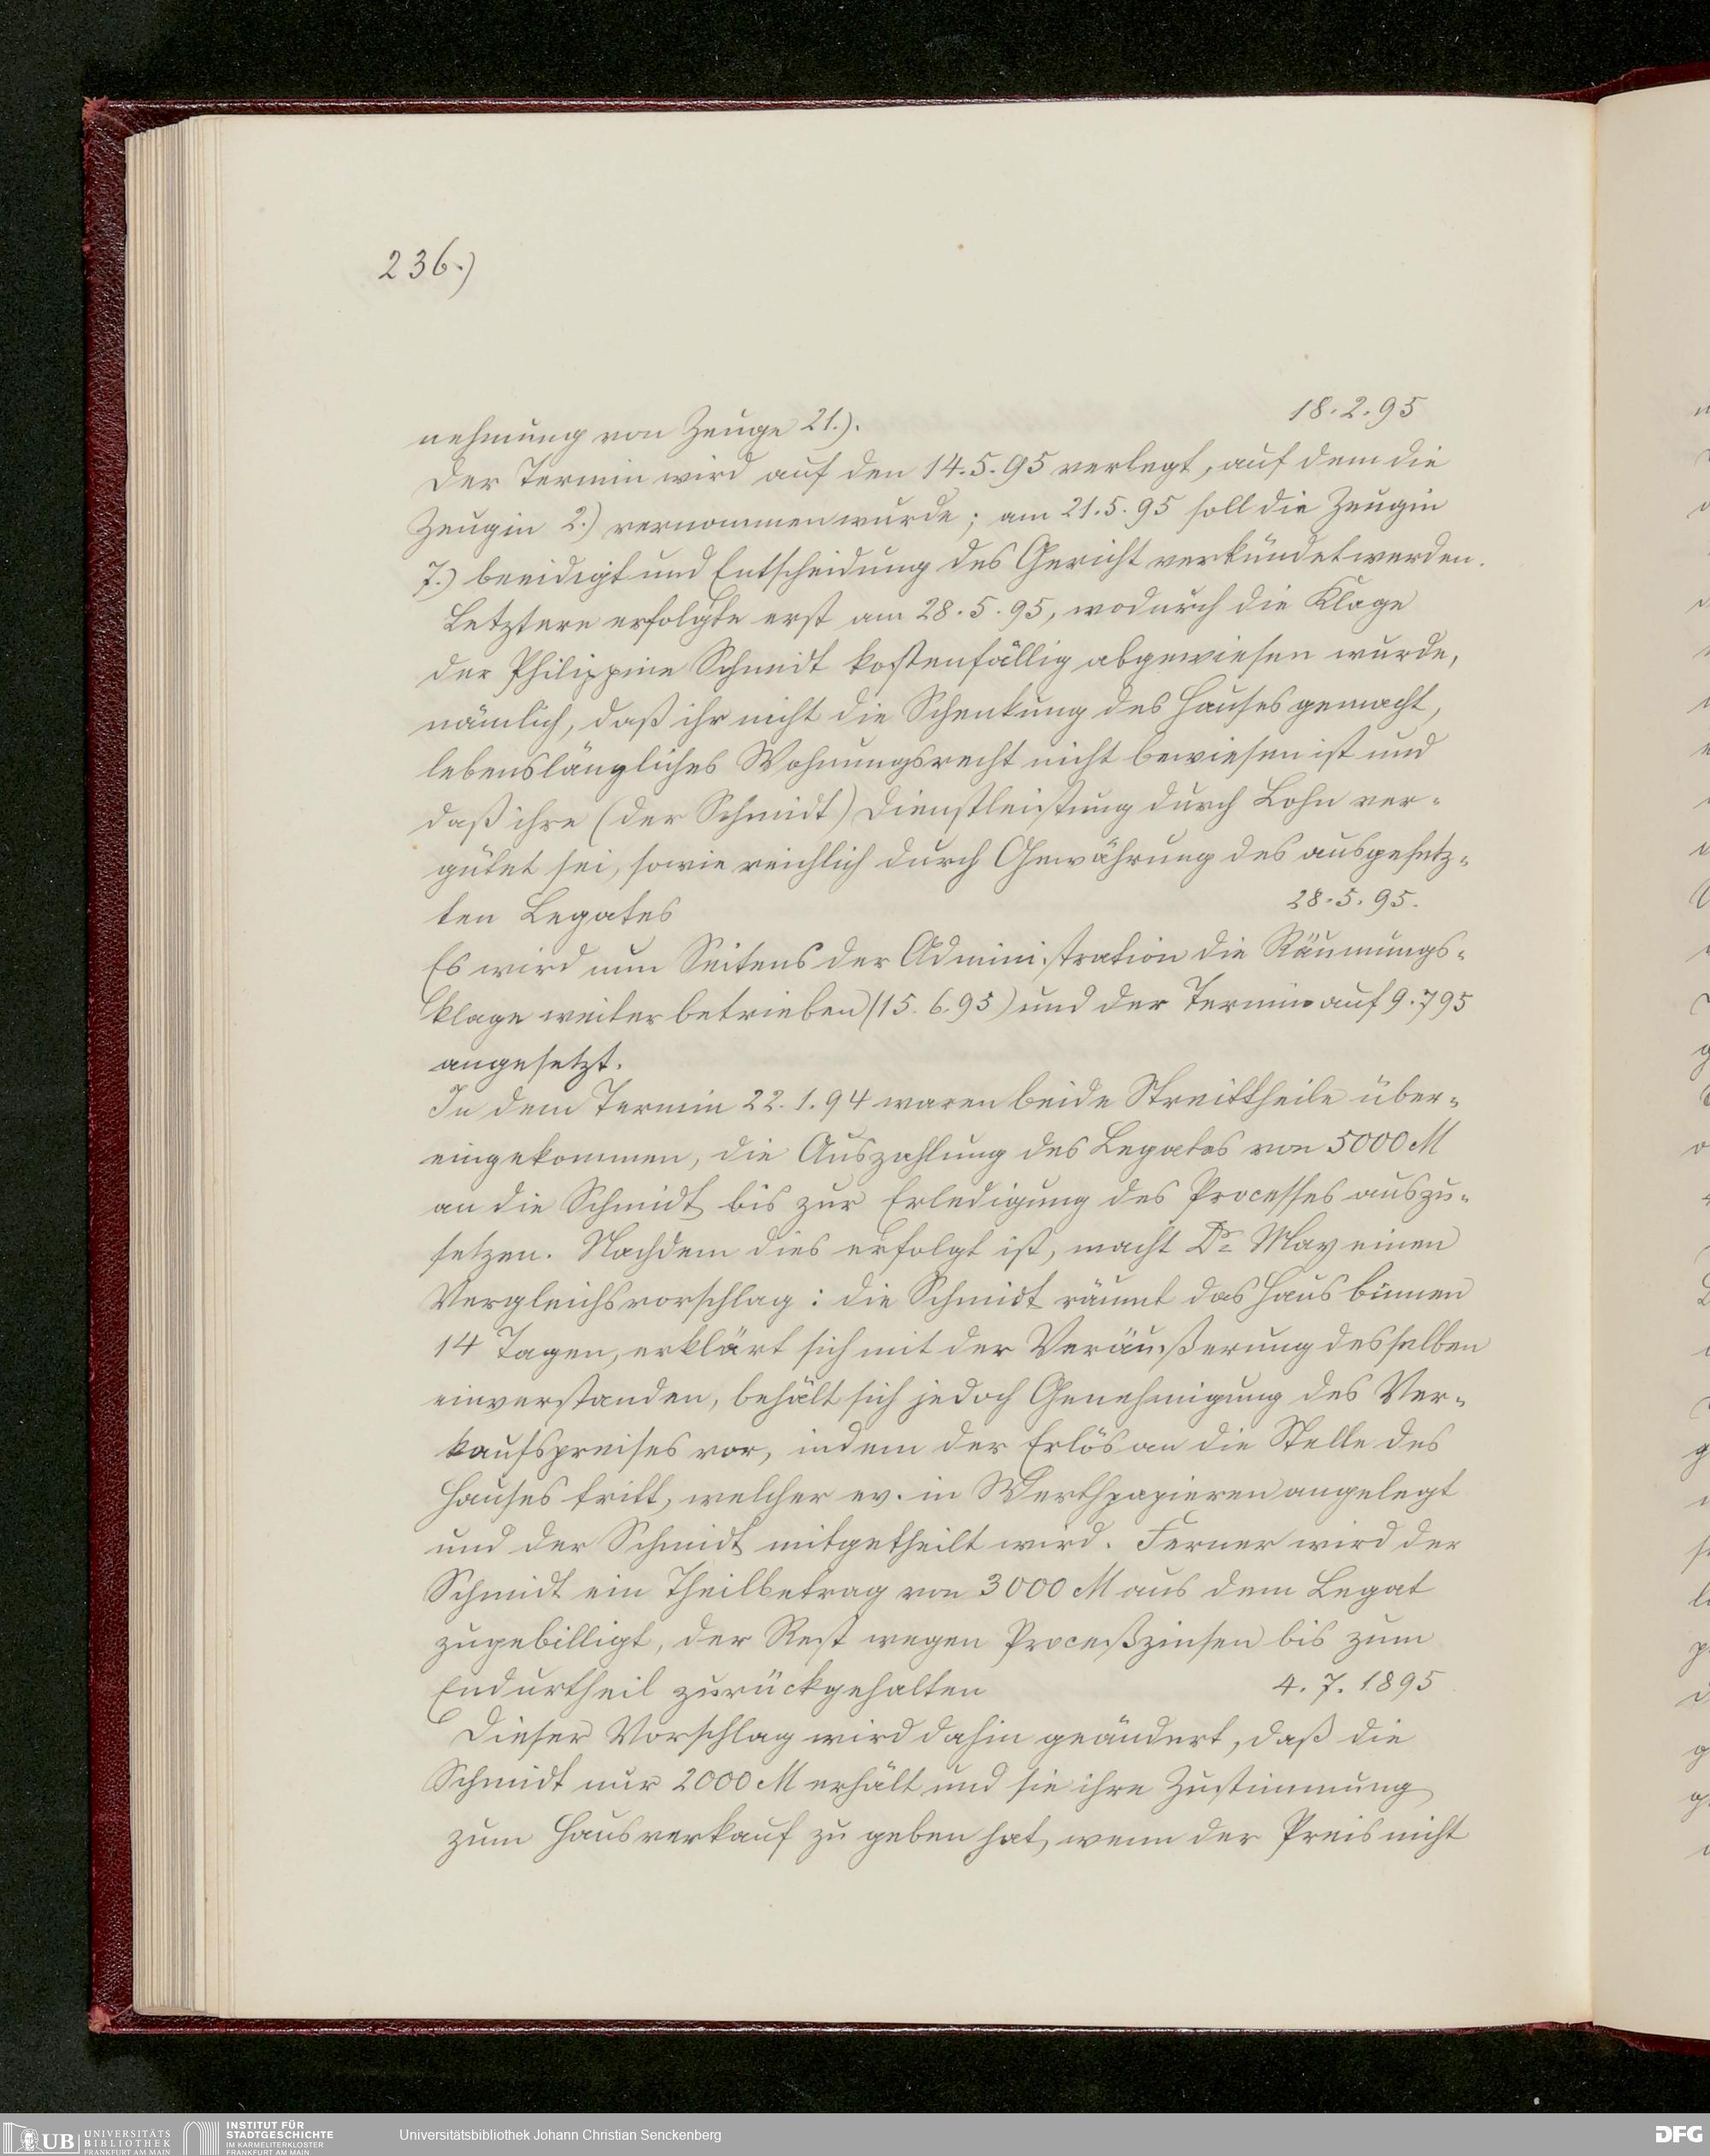 236.)
nehmung von Zeuge 21.). 18.2.95
Der Termin wird auf den 14.5.95 verlegt, auf dem die
Zeugin 2.) vernommen wurde; am 21.5.95 soll die Zeugin
7.) beeidigt und Entscheidung des Gericht verkündet werden.
Letztere erfolgte erst am 28.5.95, wodurch die Klage
der Philippine Schmidt kostenfällig abgewiesen wurde,
nämlich, daß ihr nicht die Schenkung des Hauses gemacht,
lebenslängliches Wohnungsrecht nicht bewiesen ist und
daß ihre (der Schmidt) Dienstleistung durch Lohn ver-
gütet sei, sowie reichlich durch Gewährung des ausgesetz-
ten Legates 28.5.95.
Es wird nun Seitens der Administration die Räumungs-
klage weiter betrieben (15.6.95) und der Termin auf 9.795
angesetzt.
In dem Termin 22.1.94 waren beide Streittheile über-
eingekommen, die Auszahlung des Legates von 5000 M
an die Schmidt bis zur Erledigung des Processes auszu-
setzen. Nachdem dies erfolgt ist, macht Dr May einen
Vergleichsvorschlag: die Schmidt räumt das Haus binnen
14 Tagen, erklärt sich mit der Veräußerung desselben
einverstanden, behält sich jedoch Genehmigung des Ver-
kaufspreises vor, indem der Erlös an die Stelle des
Hauses tritt, welcher ev. in Werthpapieren angelegt
und der Schmidt mitgetheilt wird. Ferner wird der
Schmidt ein Theilbetrag von 3000 M aus dem Legat
zugebilligt, der Rest wegen Proceßzinsen bis zum
Endurtheil zurückgehalten 4.7.1895
Dieser Vorschlag wird dahin geändert, daß die
Schmidt nur 2000 M erhält und sie ihre Zustimmung
zum Hausverkauf zu geben hat, wenn der Preis nicht
UB UNIVERSITÄTS
BIBLIOTHEK
FRANKFURT AM MAIN
INSTITUT FÜR
STADTGESCHICHTE
IM KARMELITERKLOSTER
FRANKFURT AM MAIN
Universitätsbibliothek Johann Christian Senckenberg
DFG